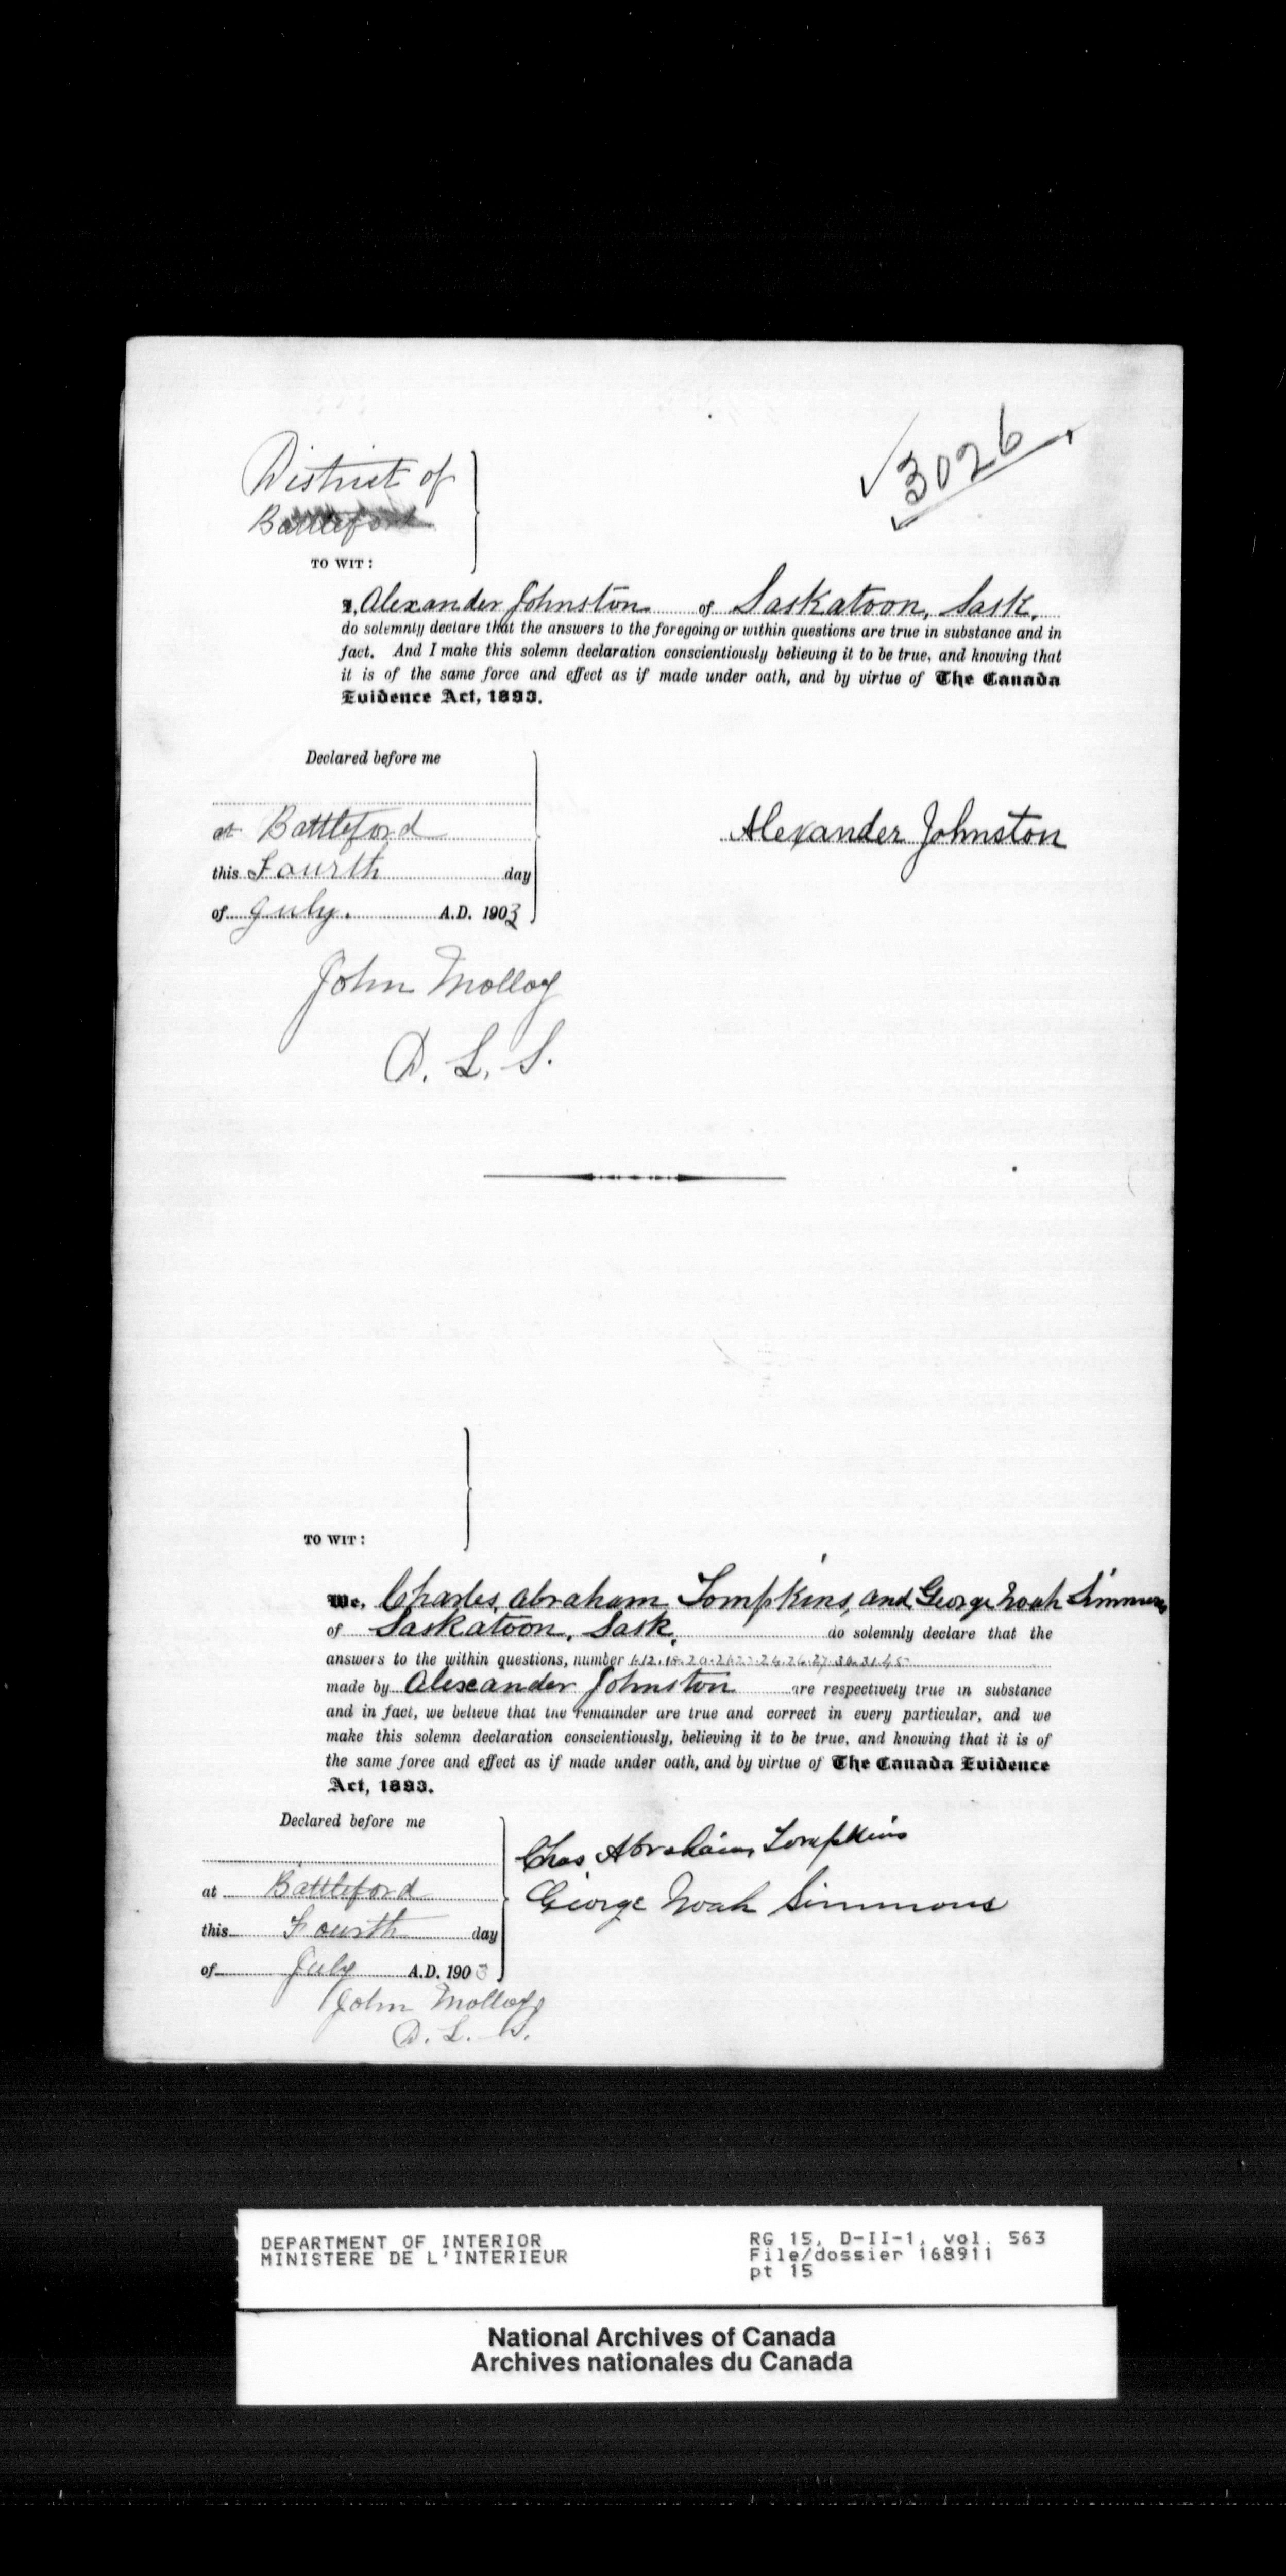 3026
District of
Battleford
TO WIT:
I, Alexander Johnston of Saskatoon, Sask.
do solemnly declare that the answers to the foregoing or within questions are true in substance and in
fact. And I make this solemn declaration conscientiously believing it to be true, and knowing that
it is of the same force and effect as if made under oath, and by virtue of The Canada
Evidence Act, 1893.
Declared before me
at Battleford
Alexander Johnston
this Fourth day
of July. A.D. 1903
John Molloy
D. L. S.
TO WIT:
We, Charles Abraham Tompkins, and George Noah Simmons
of Saskatoon, Sask. do solemnly declare that the
answers to the within questions, number
made by Alexander Johnston are respectively true in substance
and in fact, we believe that the remainder are true and correct in every particular, and we
make this solemn declaration conscientiously, believing it to be true, and knowing that it is of
the same force and effect as if made under oath, and by virtue of The Canada Evidence
Act, 1893.
Declared before me
Chas Abraham Tompkins
at Battleford
George Noah Simmons
this Fourth day
of July A.D. 1903
John Molloy
D. L. S.
DEPARTMENT OF INTERIOR
MINISTERE DE L'INTERIEUR
RG 15, D-II-1, vol. 563
File/dossier 168911
pt 15
National Archives of Canada
Archives nationales du Canada